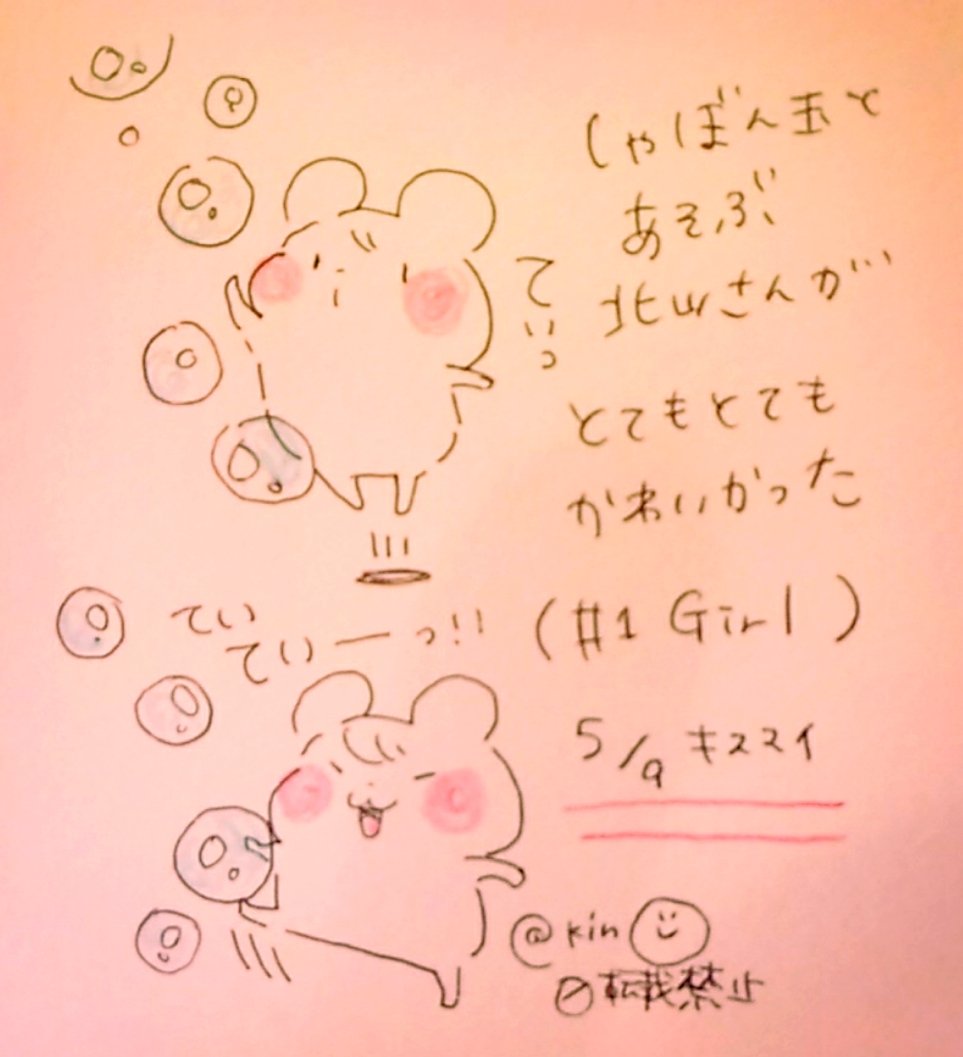 しゃぼん玉と
あそぶ
北山さんが
とてもとても
かわいかった
(#1 Girl)
5/9 キスマイ
ていっ
てい
ていーっ!!
@kin
転載禁止